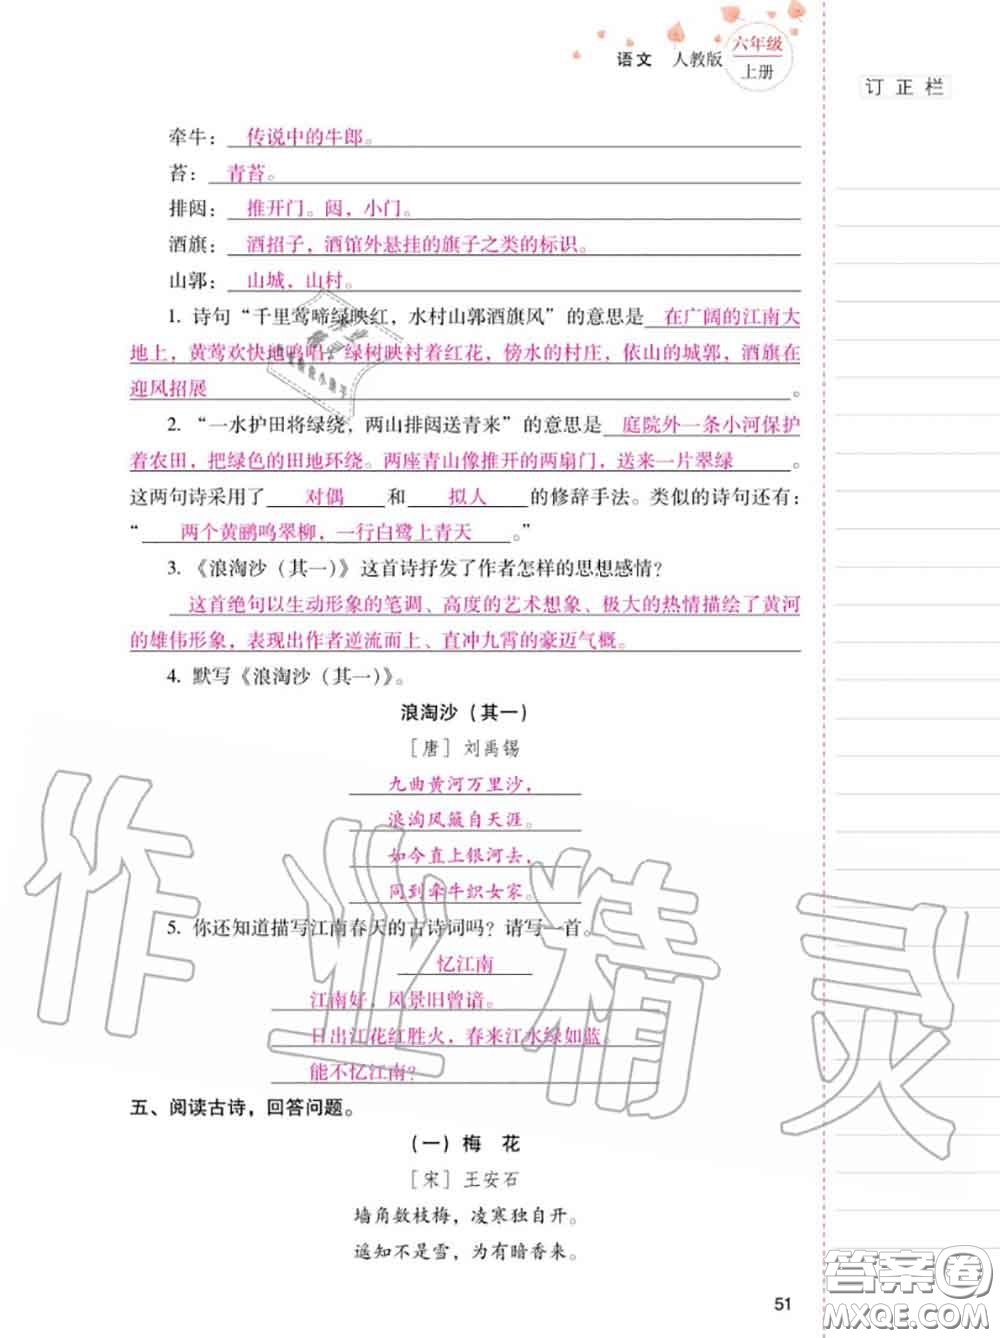 语文 人教版 六年级
上册
订正栏
牵牛：传说中的牛郎。
苔：青苔。
排闼：推开门。闼，小门。
酒旗：酒招子，酒馆外悬挂的旗子之类的标识。
山郭：山城，山村。
1. 诗句“千里莺啼绿映红，水村山郭酒旗风”的意思是 在广阔的江南大
地上，黄莺欢快地鸣唱，绿树映衬着红花，傍水的村庄、依山的城郭，酒旗在
迎风招展。
2. “一水护田将绿绕，两山排闼送青来”的意思是 庭院外一条小河保护
着农田，把绿色的田地环绕。两座青山像推开的两扇门，送来一片翠绿。
这两句诗采用了 对偶 和 拟人 的修辞手法。类似的诗句还有：
“ 两个黄鹂鸣翠柳，一行白鹭上青天 。”
3. 《浪淘沙（其一）》这首诗抒发了作者怎样的思想感情？
这首绝句以生动形象的笔调、高度的艺术想象、极大的热情描绘了黄河
的雄伟形象，表现出作者逆流而上、直冲九霄的豪迈气概。
4. 默写《浪淘沙（其一）》。
浪淘沙（其一）
［唐］刘禹锡
九曲黄河万里沙，
浪淘风簸自天涯。
如今直上银河去，
同到牵牛织女家。
5. 你还知道描写江南春天的古诗词吗？请写一首。
忆江南
江南好，风景旧曾谙。
日出江花红胜火，春来江水绿如蓝。
能不忆江南？
五、阅读古诗，回答问题。
（一）梅 花
［宋］王安石
墙角数枝梅，凌寒独自开。
遥知不是雪，为有暗香来。
51
作业精灵
答案圈
MXQE.COM